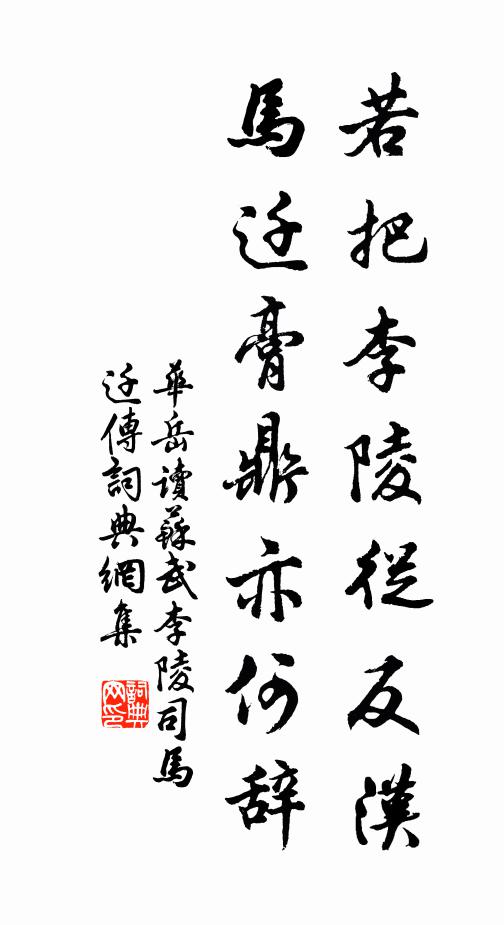 若把李陵從反漢
馬迁膏鼎亦何辞
華岳讀蘇武李陵司馬
迁傳詞典網集
詞典
网印